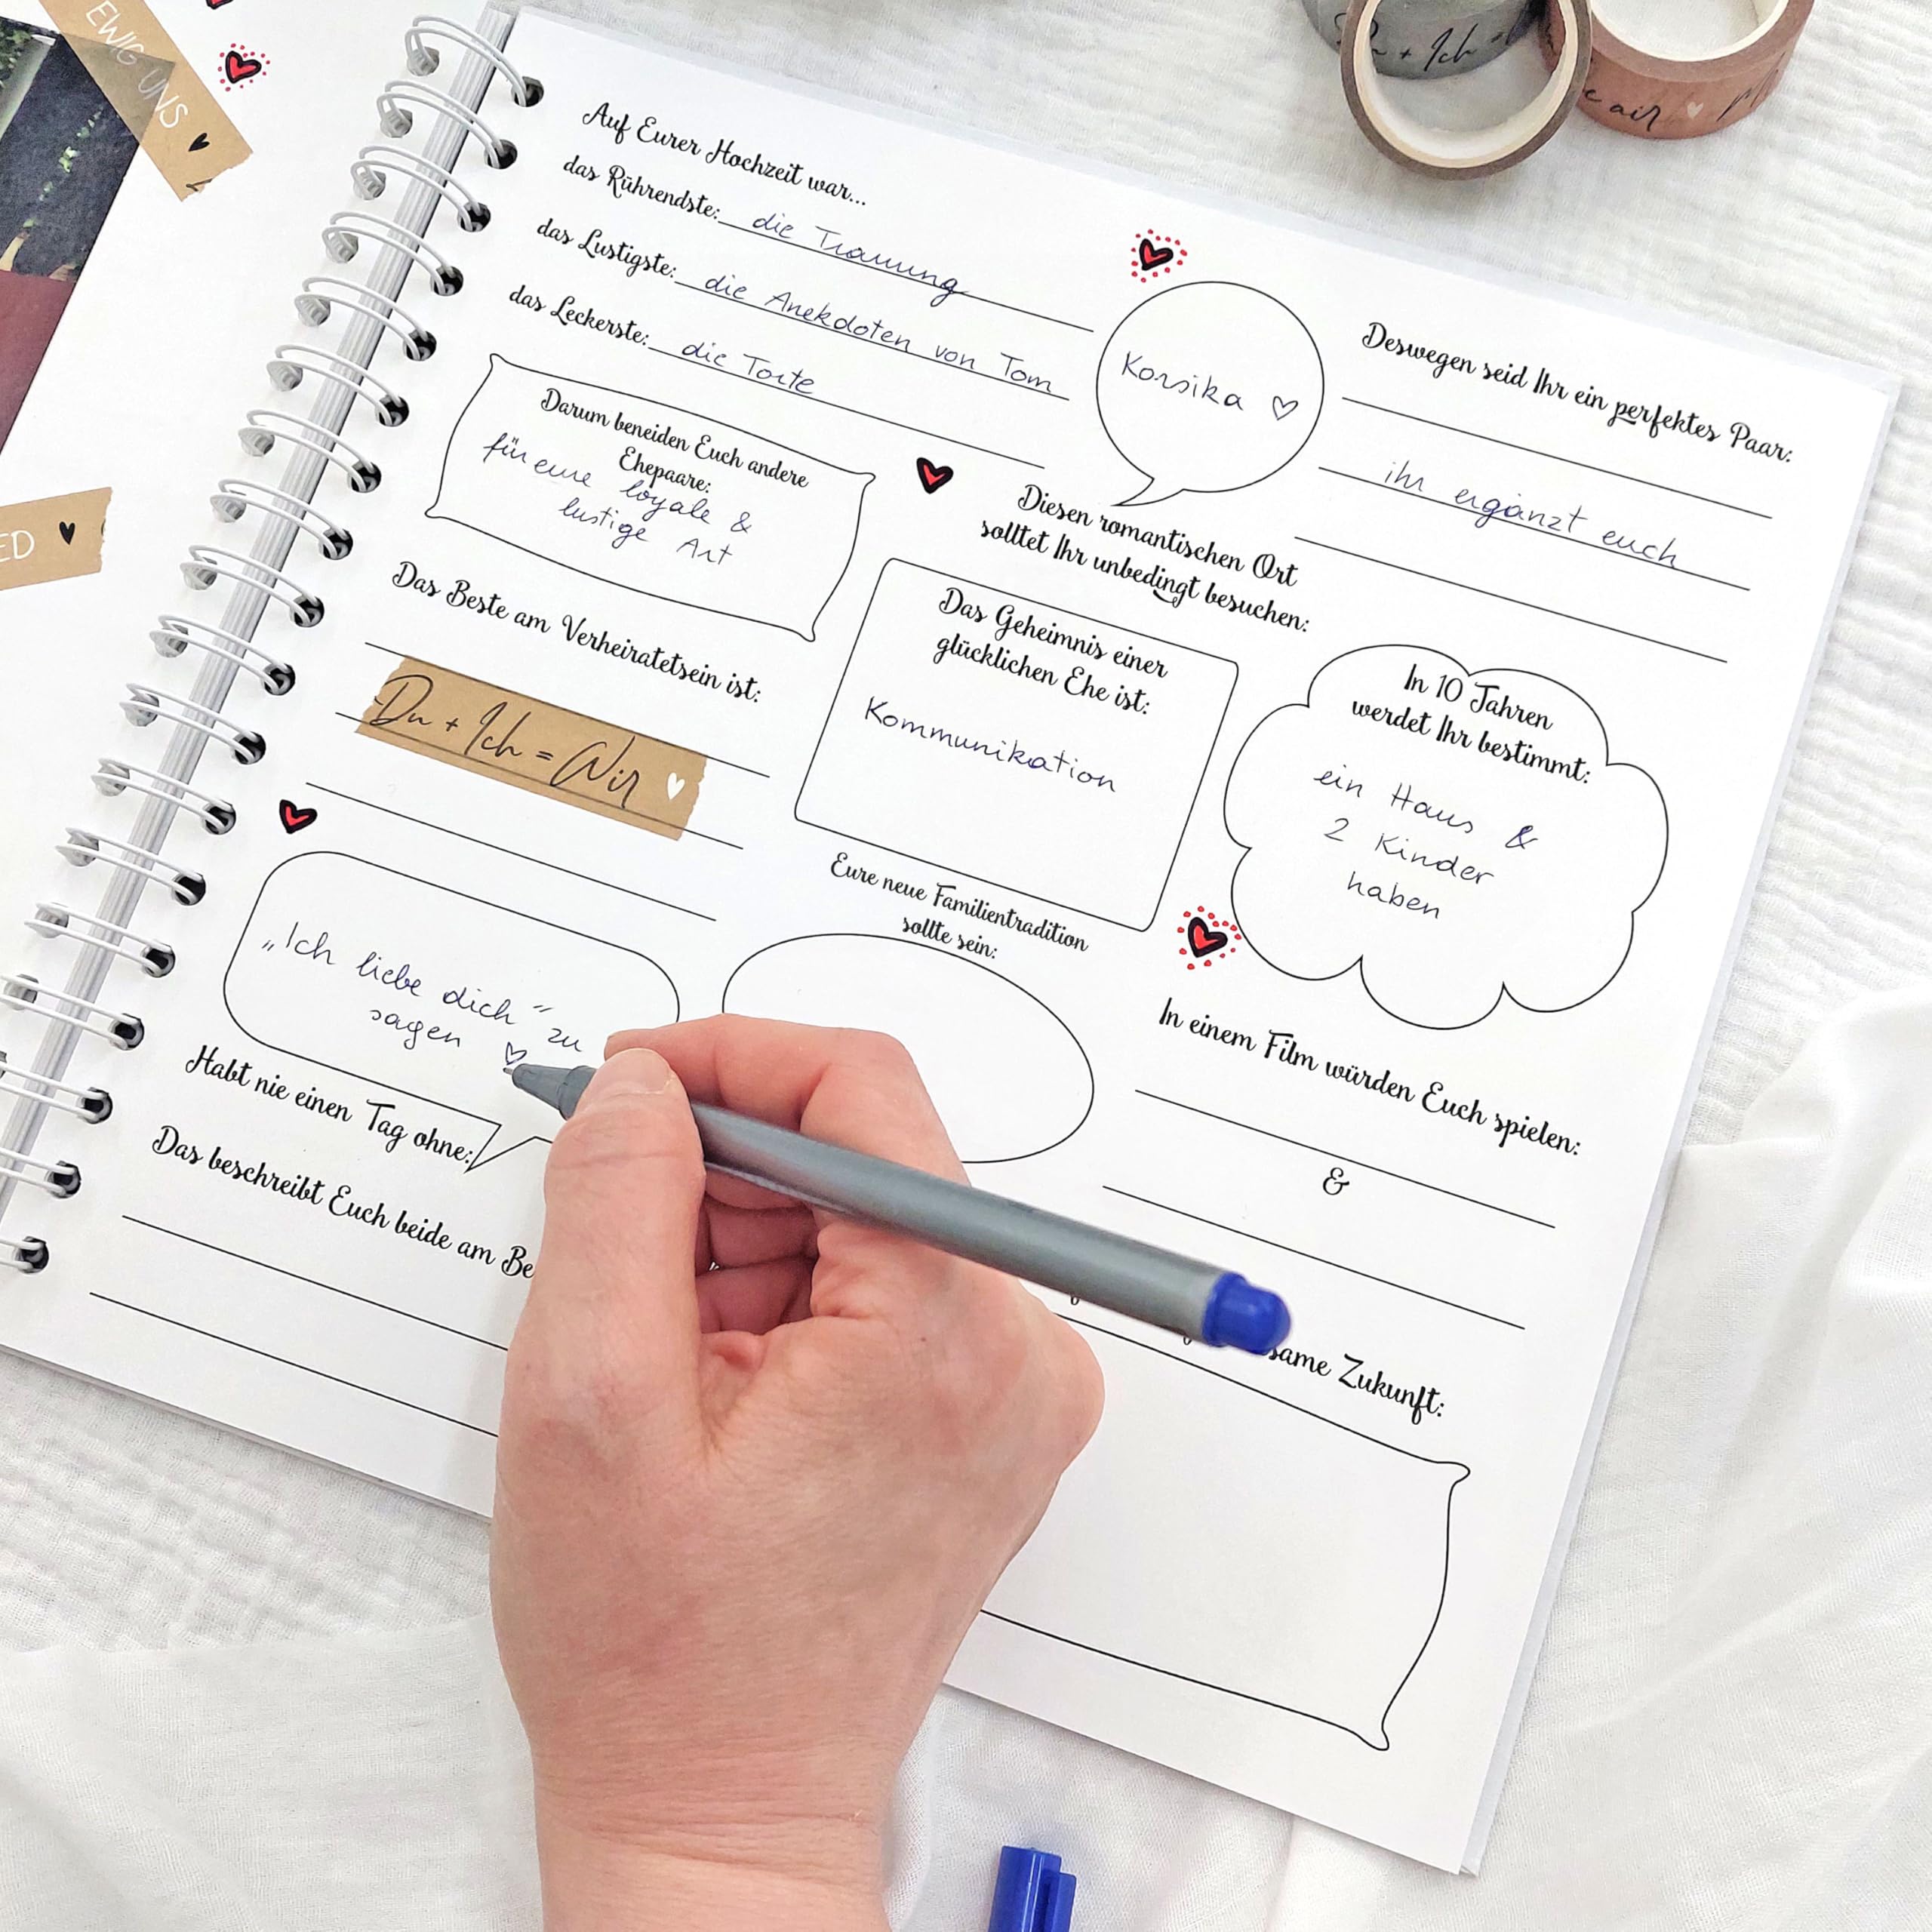 EWIG UNS
ED
Du + Ich =
Auf Eurer Hochzeit war...
das Rührendste: die Trauung
das Lustigste: die Anekdoten von Tom
das Leckerste: die Torte
Darum beneiden Euch andere
Ehepaare:
für eure loyale &
lustige Art
Korsika ♡
Diesen romantischen Ort
solltet Ihr unbedingt besuchen:
Deswegen seid Ihr ein perfektes Paar:
ihr ergänzt euch
Das Beste am Verheiratetsein ist:
Du + Ich = Wir
Das Geheimnis einer
glücklichen Ehe ist:
Kommunikation
In 10 Jahren
werdet Ihr bestimmt:
ein Haus &
2 Kinder
haben
„Ich liebe dich" zu
sagen ♡
Habt nie einen Tag ohne:
Eure neue Familientradition
sollte sein:
In einem Film würden Euch spielen:
&
Das beschreibt Euch beide am Be
same Zukunft: